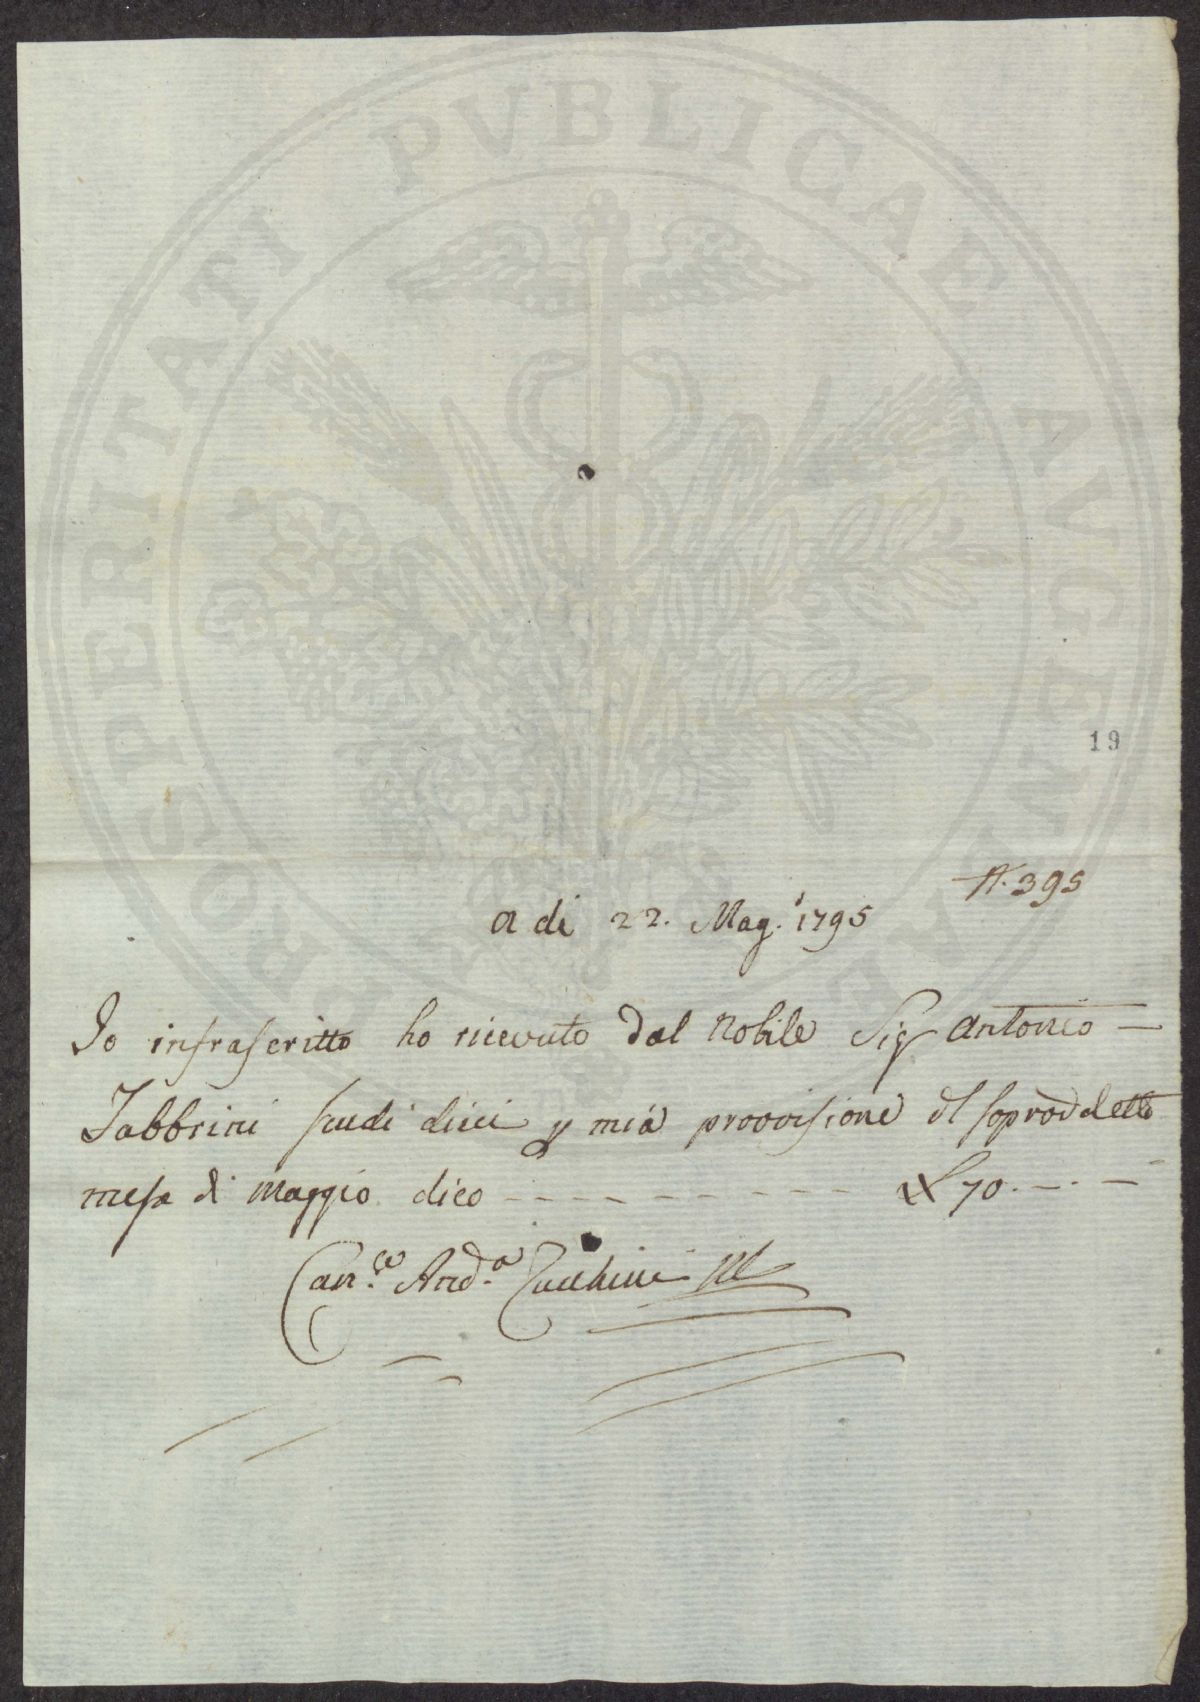 PROSPERITATI PVBLICAE AVGENDAE
19
N. 395
a di 22. Mag.º 1795
Io infrascritto ho ricevuto dal Nobile Sig Antonio —
Fabbrini scudi dieci p mia provvisione dl sopraddetto
mese di Maggio dico - - - - - - - - - - £ 70. - . -
Can.ce And.a Zucchini